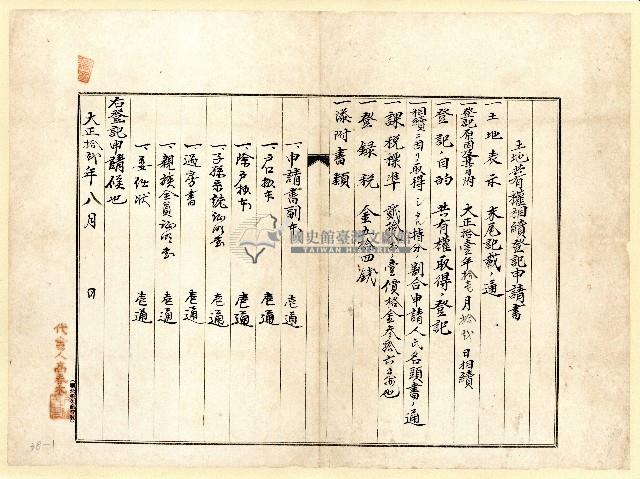 土地共有權相續登記申請書
一土地表示 末尾記載ノ通
一登記原因及其日附 大正拾壹年拾壱月拾弐日相續
一登記ノ目的 共有權取得ノ登記
一相續ニ因リ取得シタル持分ノ割合申請人氏名頭書ノ通
一課稅標準 壹價格金參拾六
一登録稅 金五拾四錢
一添附書類
一、申請書副本 壱通
一、戶口抄本 壱通
一、除戶抄本 壱通
一、子孫系統證明書 壱通
一、過房書 壱通
一、親族全員證明書 壱通
一、委任狀 壱通
右登記申請候也
大正拾弐年八月 日
代書人高春木
國史館臺灣文獻館
TAIWAN HISTORICA
38-1